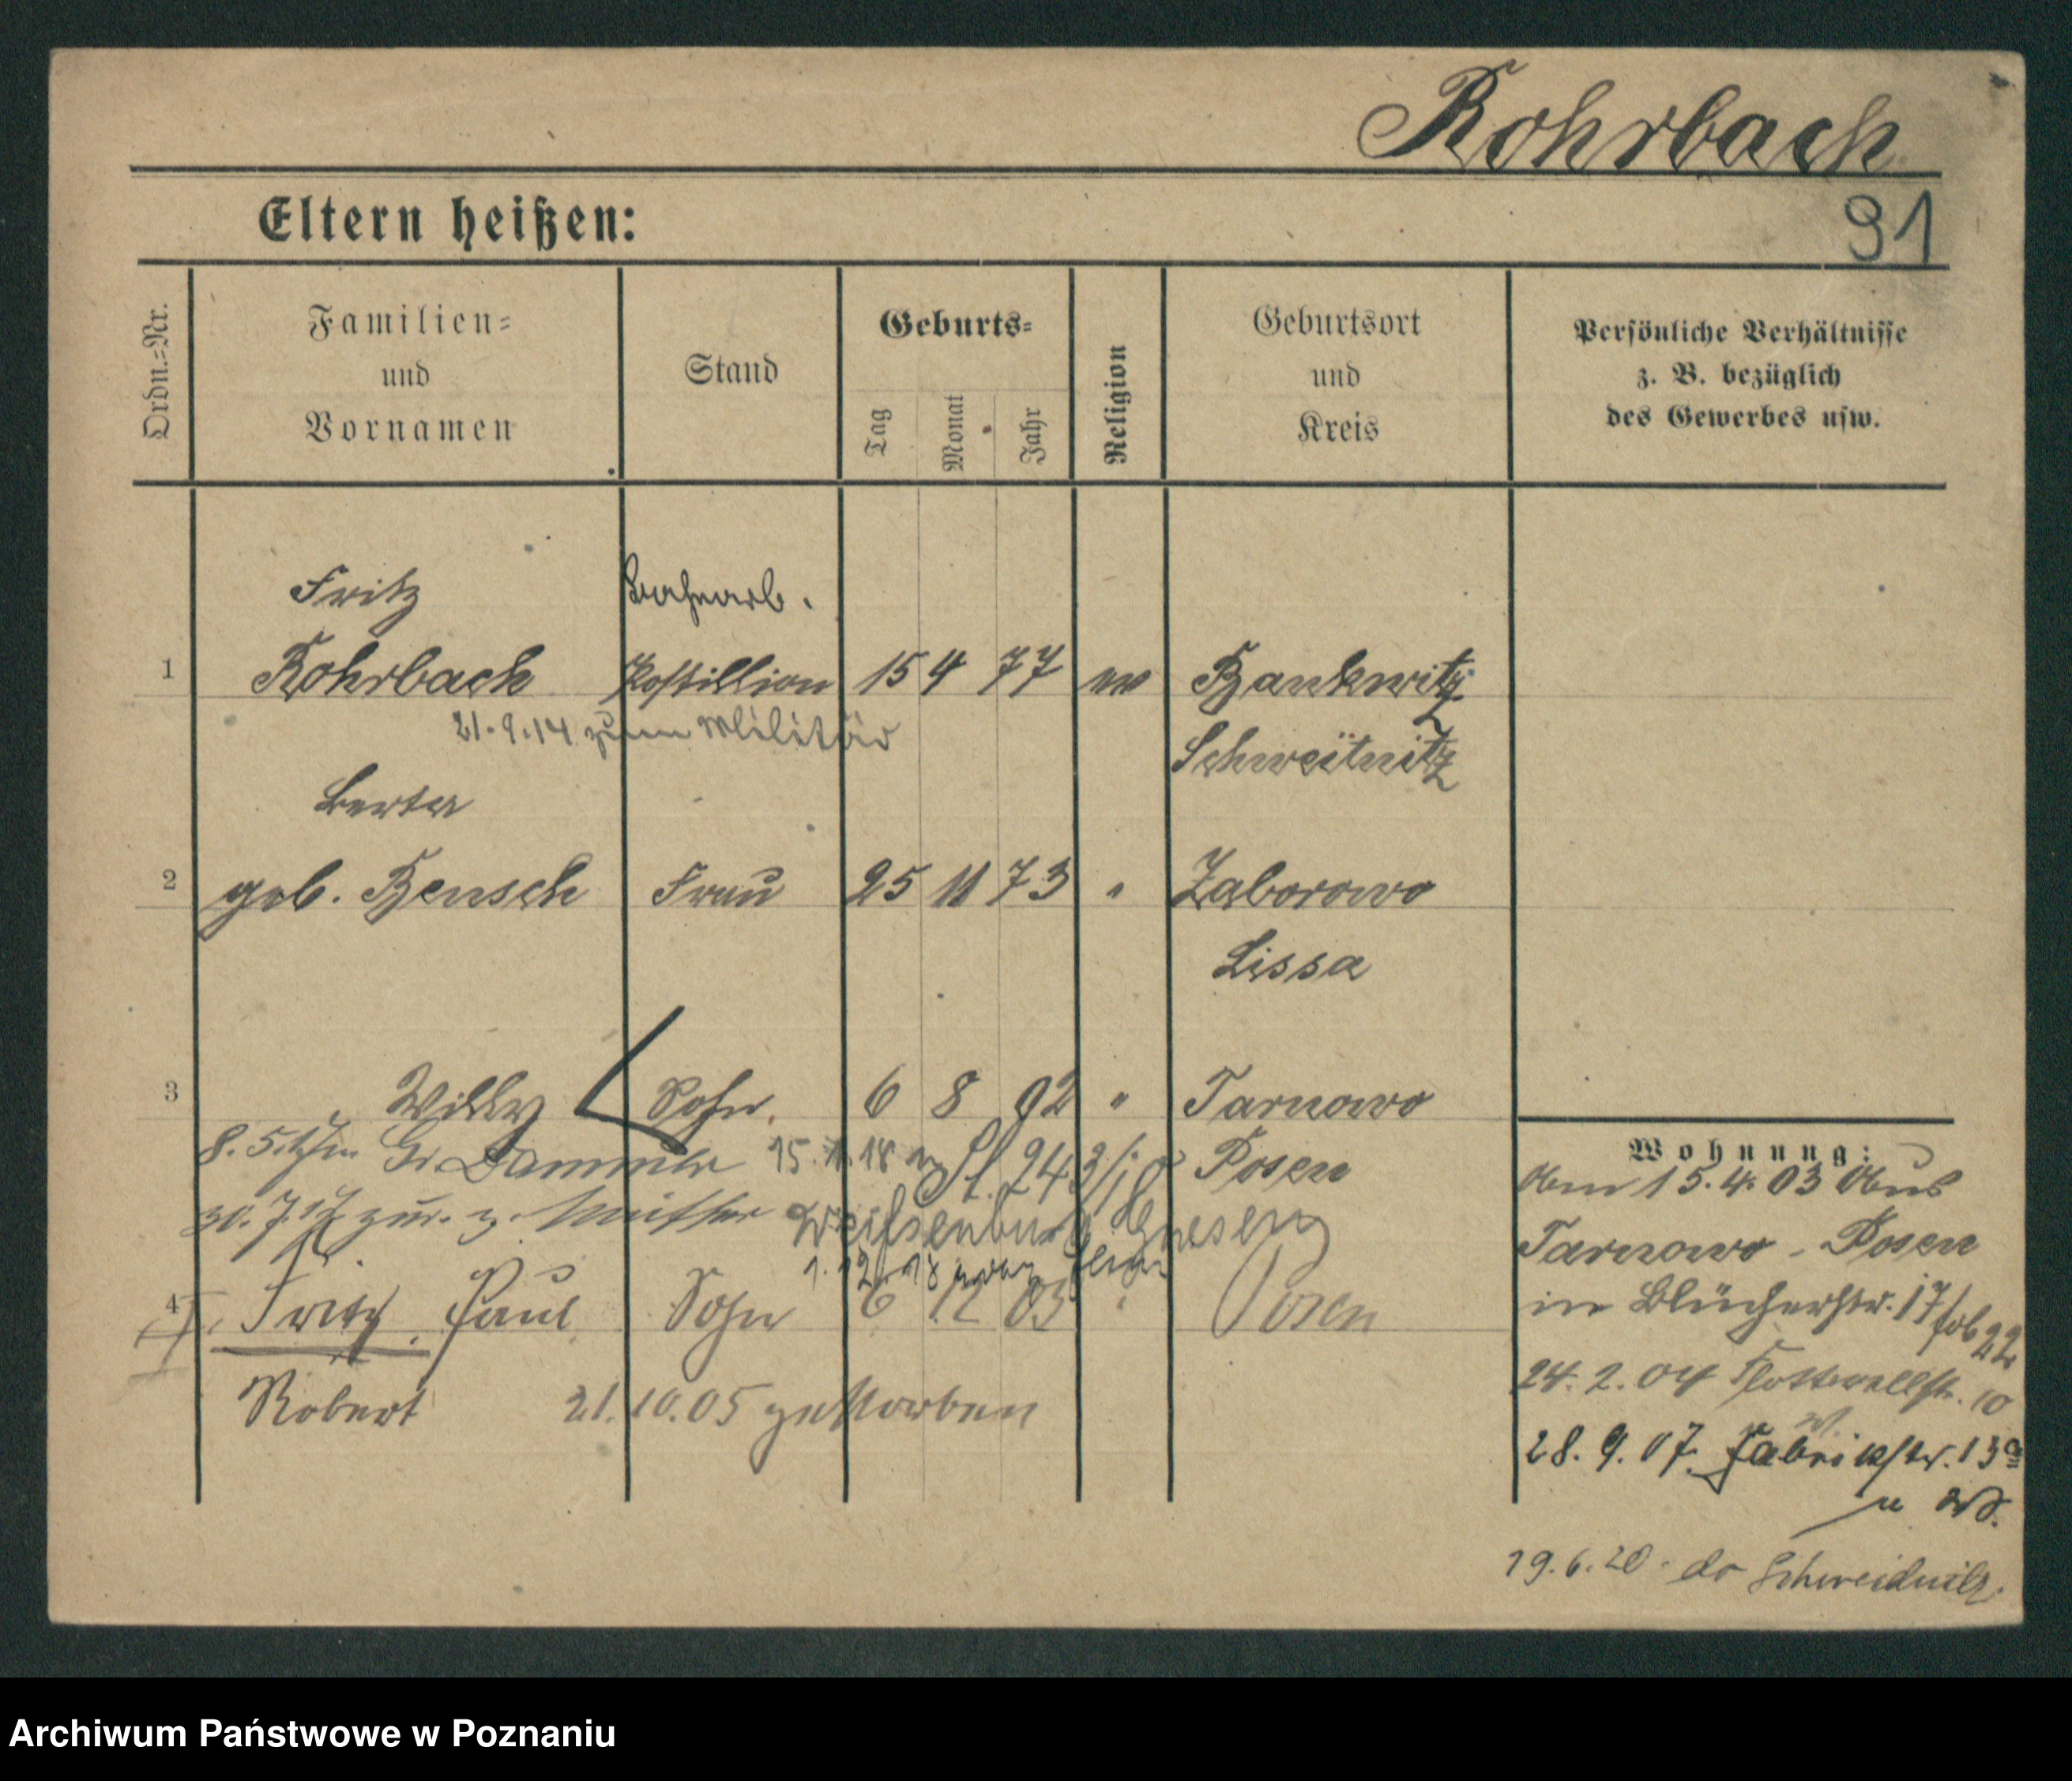 Rohrbach
91
Eltern heißen:
Ordn.=Nr.
Familien=
und
Vornamen
Stand
Geburts=
Tag
Monat
Jahr
Religion
Geburtsort
und
Kreis
Persönliche Verhältnisse
z. B. bezüglich
des Gewerbes usw.
Fritz Bahnarb.
1 Rohrbach Postillion 15 4 77 ev Bankwitz
21.9.14 zum Militär Schweitnitz
Berta
2 geb. Bensch Frau 25 11 73 " Zaborowo
Lissa
3 Willy Sohn 6 8 92 " Tarnowo
8.5.17 in Gr. Dammer 15.1.18 Posen
30.7.17 zur. z. Mutter Weissenburg Gnesen
1.12.18
4 Fritz, Paul Sohn 6 12 03 " Posen
Robert 21.10.05 gestorben
Wohnung:
Am 15.4.03 Aus
Tarnowo - Posen
in Blücherstr. 17
24.2.04 Flottwellstr. 10
28.9.07. Fabrikstr. 13a
19.6.20 Schweidnitz.
Archiwum Państwowe w Poznaniu